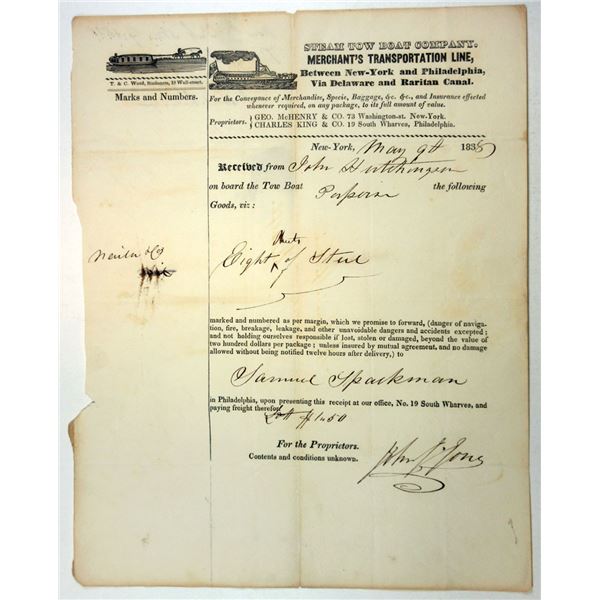 STEAM TOW BOAT COMPANY.
MERCHANT'S TRANSPORTATION LINE,
Between New-York and Philadelphia,
Via Delaware and Raritan Canal.
T. & C. Wood, Stationers, 18 Wall-street.
Marks and Numbers.
For the Conveyance of Merchandise, Specie, Baggage, &c. &c., and Insurance effected
whenever required, on any package, to its full amount of value.
Proprietors. { GEO. McHENRY & CO. 73 Washington-st. New-York.
CHARLES KING & CO. 19 South Wharves, Philadelphia.
New-York, May 9th 1838
Received from John Hutchinson
on board the Tow Boat Porpoise the following
Goods, viz:
Naylor & Co
Eight Chests of Steel
marked and numbered as per margin, which we promise to forward, (danger of naviga-
tion, fire, breakage, leakage, and other unavoidable dangers and accidents excepted;
and not holding ourselves responsible if lost, stolen or damaged, beyond the value of
two hundred dollars per package; unless insured by mutual agreement, and no damage
allowed without being notified twelve hours after delivery,) to
Samuel Spackman
in Philadelphia, upon presenting this receipt at our office, No. 19 South Wharves, and
paying freight therefor. 1.50
For the Proprietors.
Contents and conditions unknown.
John J. Jones